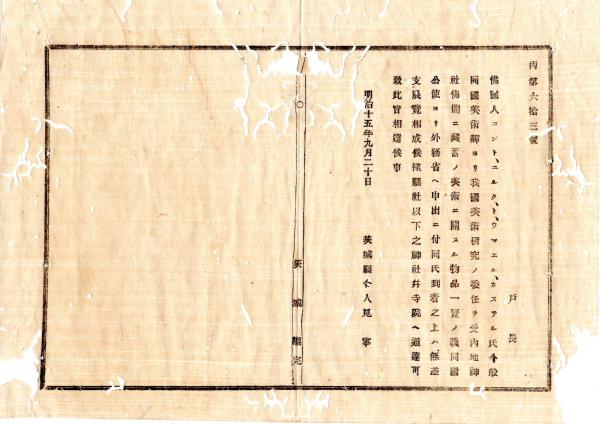 丙第六拾三號
戸長
佛國人コント、ニルクト、ウマエル、カステル氏今般
同國美術卿ヨリ我國美術研究ノ委任ヲ受內地神
社佛閣ニ藏蓄ノ美術ニ關スル物品一覽ノ義同國
公使ヨリ外務省ヘ申出ニ付同氏到着之上ハ無差
支展覽相成候樣縣社以下之神社幷寺院ヘ通達可
致此旨相達候事
明治十五年九月二十日
茨城縣令人見寧
茨城縣